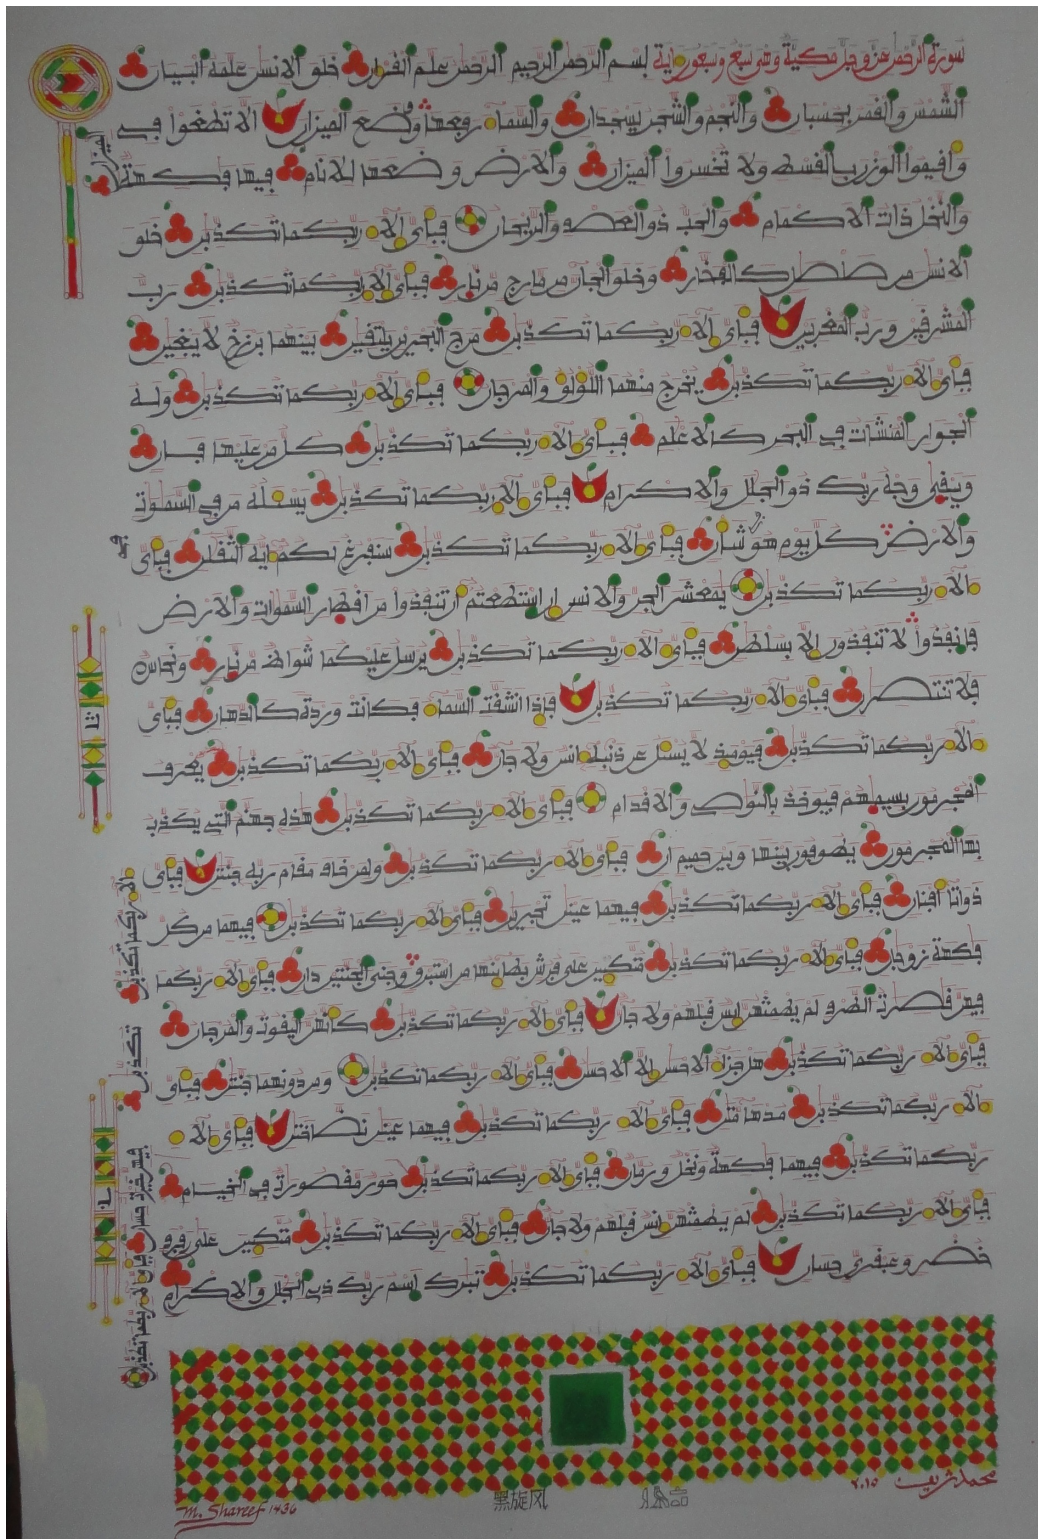 سورة الرحمن عز وجل مكية وهي سبع وسبعون ءاية بسم الرحمن الرحيم الرحمن علم القرءان خلق الانسن علمه البيان
الشمس والقمر بحسبان والنجم والشجر يسجدان والسماء رفعها ووضع الميزان الا تطغوا في
الميزان
وأقيموا الوزن بالقسط ولا تخسروا الميزان والارض وضعها للانام فيها فكهة
والنخل ذات الاكمام والحب ذو العصف والريحان فبأي ءالاء ربكما تكذبن خلق
الانسن من صلصل كالفخار وخلق الجان من مارج من نار فبأي ءالاء ربكما تكذبن رب
المشرقين ورب المغربين فبأي ءالاء ربكما تكذبن مرج البحرين يلتقين بينهما برزخ لا يبغين
فبأي ءالاء ربكما تكذبن يخرج منهما اللؤلؤ والمرجان فبأي ءالاء ربكما تكذبن وله
الجوار المنشات في البحر كالاعلم فبأي ءالاء ربكما تكذبن كل من عليها فان
ويبقى وجه ربك ذو الجلل والاكرام فبأي ءالاء ربكما تكذبن يسئله من في السموت
والارض كل يوم هو شأن فبأي ءالاء ربكما تكذبن سنفرغ لكم أيه الثقلن فبأي
في
ءالاء ربكما تكذبن يمعشر الجن والانس إن استطعتم أن تنفذوا من اقطار السموات والارض
فانفذوا لا تنفذون إلا بسلطن فبأي ءالاء ربكما تكذبن يرسل عليكما شواظ من نار ونحاس
فلا تنتصرن فبأي ءالاء ربكما تكذبن فإذا انشقت السماء فكانت وردة كالدهان فبأي
ءالاء ربكما تكذبن فيومئذ لا يسئل عن ذنبه إنس ولا جان فبأي ءالاء ربكما تكذبن يعرف
المجرمون بسيمهم فيوخذ بالنواصي والاقدام فبأي ءالاء ربكما تكذبن هذه جهنم التي يكذب
بها المجرمون يطوفون بينها وبين حميم ان فبأي ءالاء ربكما تكذبن ولمن خاف مقام ربه جنتن فبأي
ءالاء ربكما تكذبن
ذواتا أفنان فبأي ءالاء ربكما تكذبن فيهما عينن تجرين فبأي ءالاء ربكما تكذبن فيهما من كل
فكهة زوجان فبأي ءالاء ربكما تكذبن متكئين على فرش بطائنها من استبرق وجنى الجنتين دان فبأي ءالاء ربكما
تكذبن
فيهن قصرت الطرف لم يطمثهن إنس قبلهم ولا جان فبأي ءالاء ربكما تكذبن كأنهن اليقوت والمرجان
فبأي ءالاء ربكما تكذبن هل جزاء الاحسن إلا الاحسن فبأي ءالاء ربكما تكذبن ومن دونهما جنتن فبأي
ءالاء ربكما تكذبن مدهامتن فبأي ءالاء ربكما تكذبن فيهما عينن نضاختن فبأي ءالاء
ربكما تكذبن فيهما فكهة ونخل ورمان فبأي ءالاء ربكما تكذبن حور مقصورت في الخيام
فيهن خيرت حسان فبأي ءالاء ربكما تكذبن
فبأي ءالاء ربكما تكذبن لم يطمثهن إنس قبلهم ولا جان فبأي ءالاء ربكما تكذبن متكئين على رفرف
خضر وعبقري حسان فبأي ءالاء ربكما تكذبن تبرك اسم ربك ذي الجلل والاكرام
محمد شريف ٢٠١٥
黑旋风
M. Shareef 1436